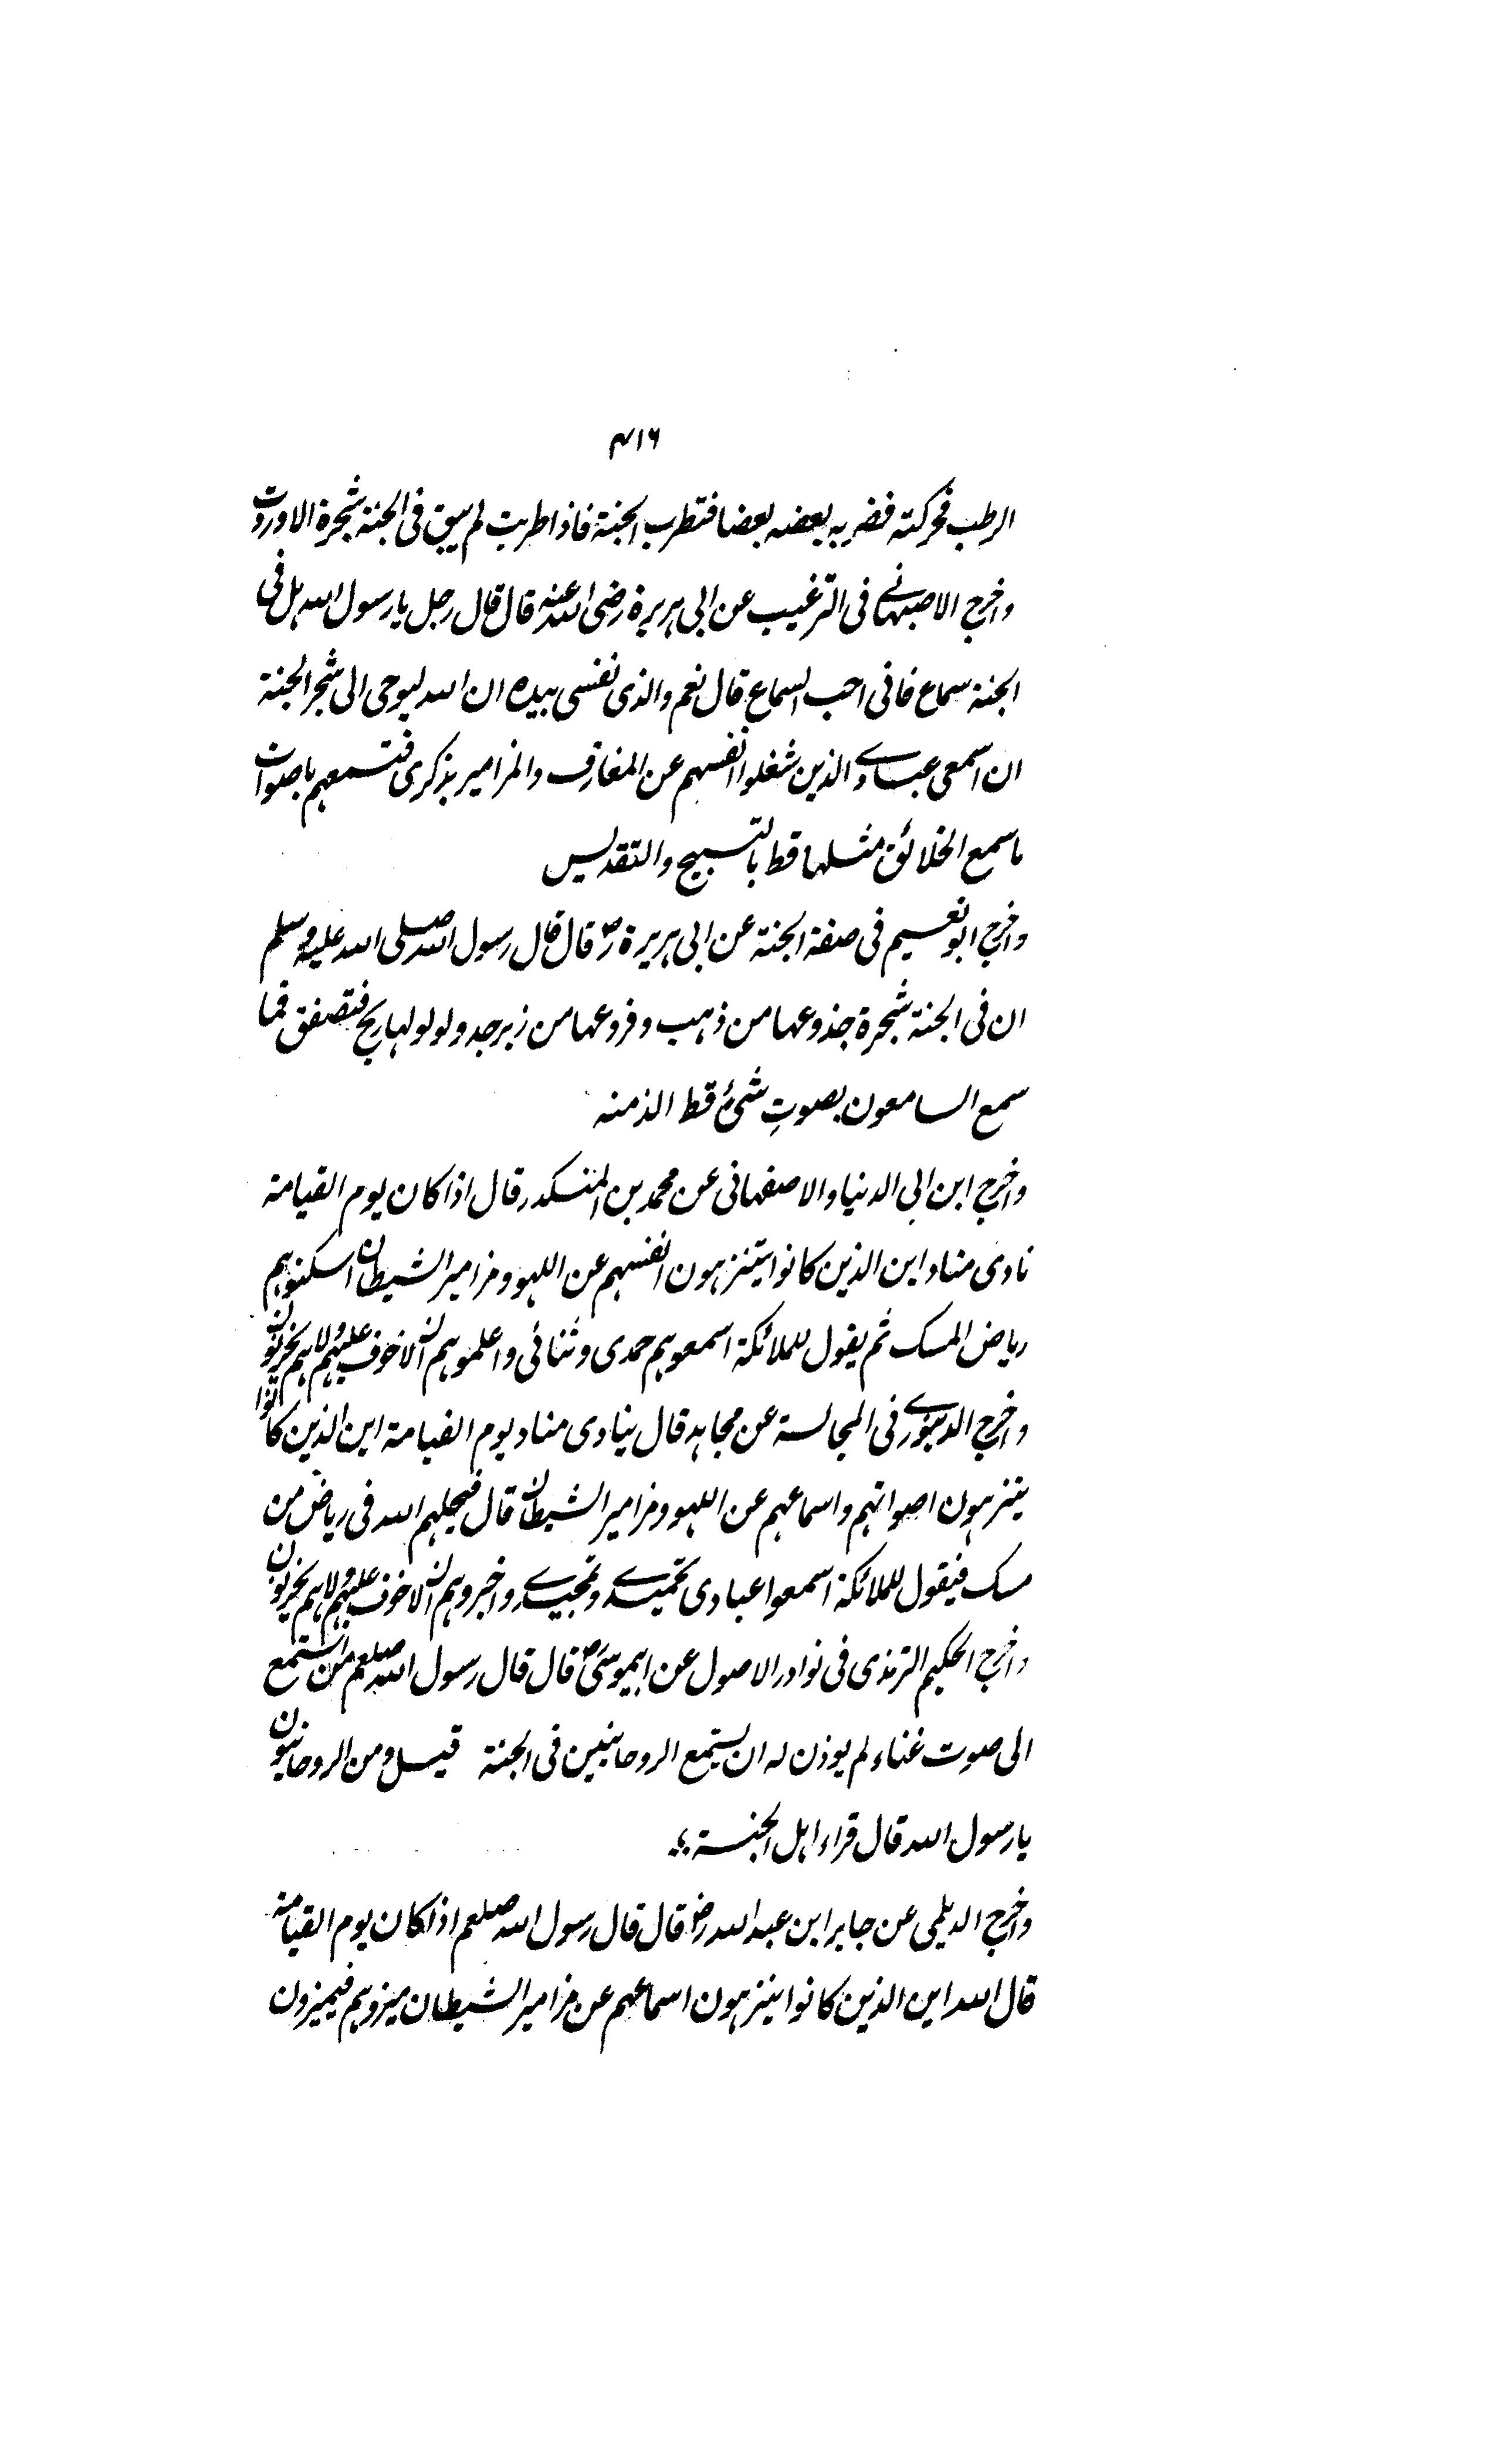 ۴۱۶
الرطب فحرکته فضربه بعضه بعضا فتطرب الجنة فاذا طربت لم یبق فی الجنة شجرة الا وردت
واخرج الاصبهانی فی الترغیب عن ابی ہریرة رضی اللہ عنہ قال قال رجل یا رسول اللہ ہل فی
الجنة سماع فانی احب السماع قال نعم والذی نفسی بیدہ ان اللہ لیوحی الی شجر الجنة
ان اسمعی عبادی الذین شغلوا انفسہم عن المعازف والمزامیر بذکری فتسمعہم باصوات
ما سمع الخلائق مثلہا قط بالتسبیح والتقدیس
واخرج ابو نعیم فی صفة الجنة عن ابی ہریرة رض قال قال رسول اللہ صلی اللہ علیہ وسلم
ان فی الجنة شجرة جذوعہا من ذہب وفروعہا من زبرجد ولولو لہا ریح فتصفق فما
سمع السامعون بصوتِ شیٔ قط الذ منہ
واخرج ابن ابی الدنیا والاصفہانی عن محمد بن المنکدر قال اذا کان یوم القیامة
نادی مناد این الذین کانوا یتنزہون انفسہم عن اللہو ومزامیر الشیطان اسکنوہم
ریاض المسک ثم یقول للملائکة اسمعوہم حمدی وثنائی واعلموہم ان لاخوف علیہم ولا ہم یحزنون
واخرج الدینوری فی المجالسة عن مجاہد قال ینادی مناد یوم القیامة این الذین کانوا
یتنزہون اصواتہم واسماعہم عن اللہو ومزامیر الشیطان قال فیحلہم اللہ فی ریاض من
مسک فیقول للملائکة اسمعوا عبادی تحمیدی وتمجیدی واخبروہم ان لاخوف علیہم ولا ہم یحزنون
واخرج الحکیم الترمذی فی نوادر الاصول عن ابیموسیٰ رض قال قال رسول اللہ صلعم من استمع
الی صوت غناء لم یوذن لہ ان یستمع الروحانیین فی الجنة قیل ومن الروحانیون
یا رسول اللہ قال قراء اہل الجنة
واخرج الدیلمی عن جابر ابن عبد اللہ رض قال قال رسول اللہ صلعم اذا کان یوم القیامة
قال اللہ این الذین کانوا ینزہون اسماعہم عن مزامیر الشیطان میزوہم فیمیزون